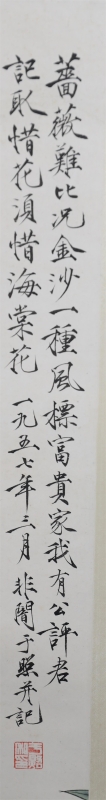 薔薇難比況金沙一種風標富貴家我有公評君
記取惜花須惜海棠花 一九五七年三月非闇于照并記